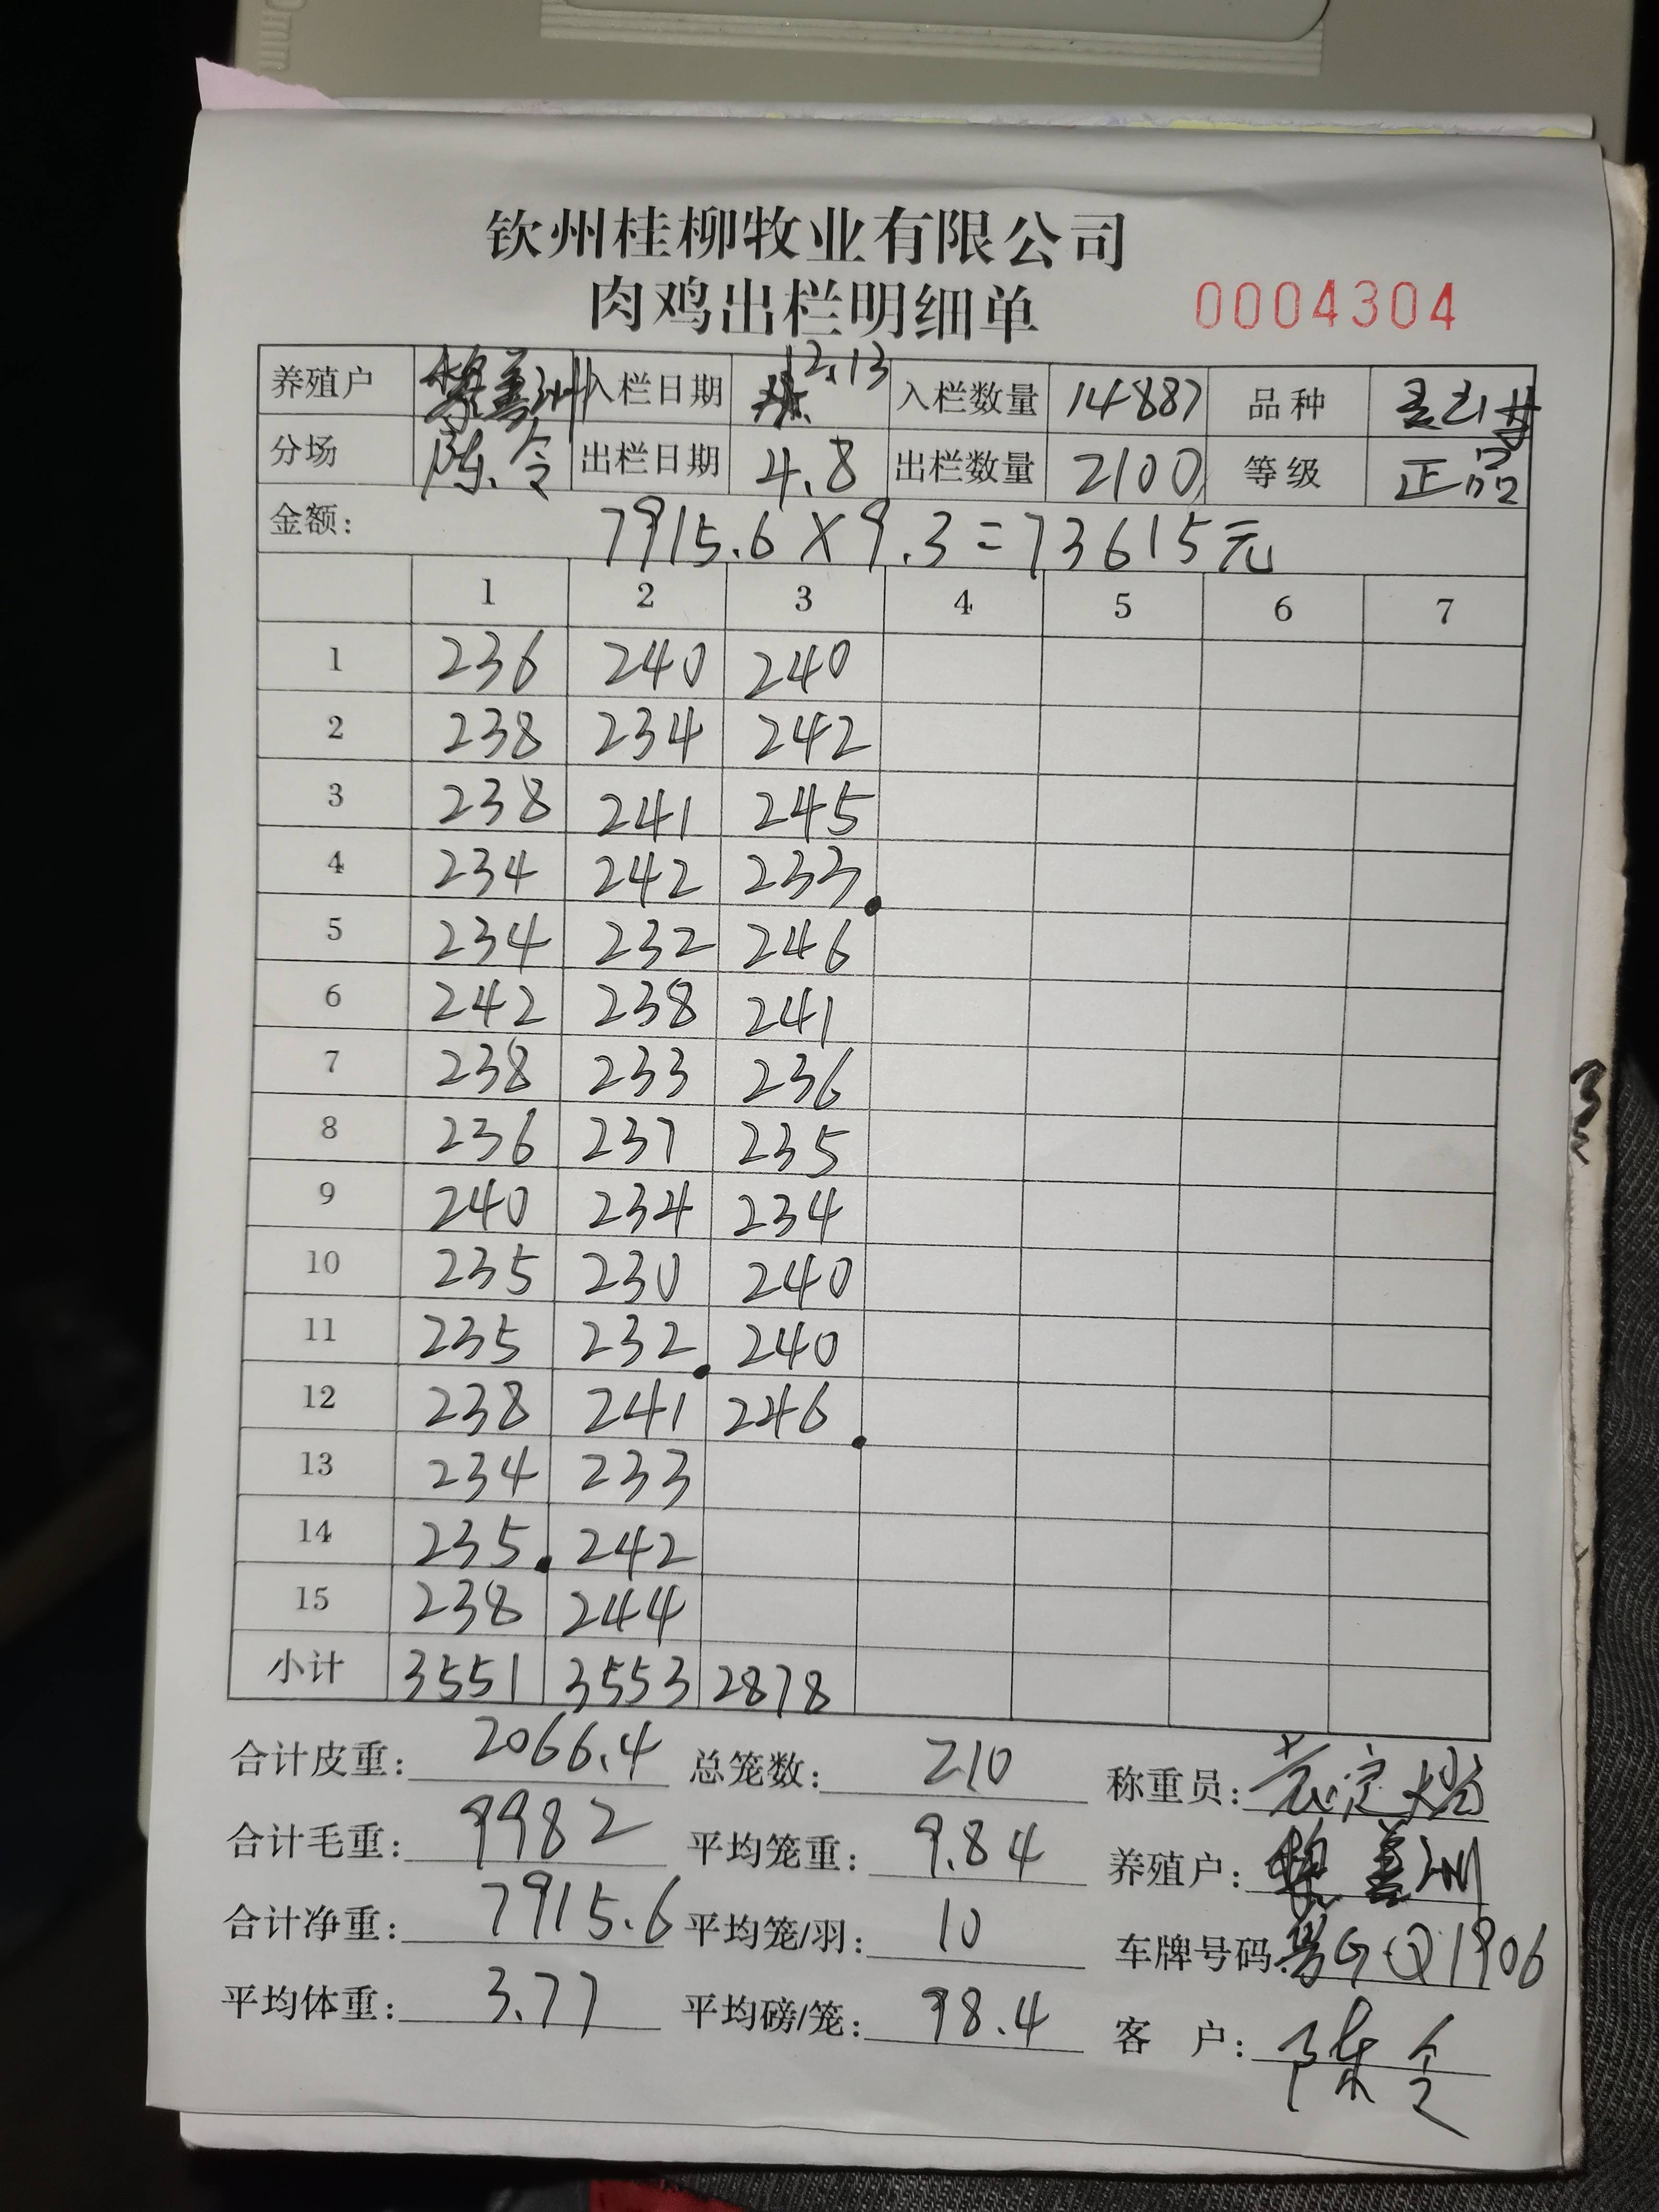 钦州桂柳牧业有限公司
肉鸡出栏明细单 0004304
养殖户 黎善洲 入栏日期 12.13 入栏数量 14887 品种
分场 陈令 出栏日期 4.8 出栏数量 2100 等级 正品
金额: 7915.6×9.3=73615元
1 2 3 4 5 6 7
1 236 240 240
2 238 234 242
3 238 241 245
4 234 242 233
5 234 232 246
6 242 238 241
7 238 233 236
8 236 237 235
9 240 234 234
10 235 230 240
11 235 232 240
12 238 241 246
13 234 233
14 235 242
15 238 244
小计 3551 3553 2878
合计皮重: 2066.4 总笼数: 210 称重员:
合计毛重: 9982 平均笼重: 9.84 养殖户: 黎善洲
合计净重: 7915.6 平均笼/羽: 10 车牌号码: 粤GQ1906
平均体重: 3.77 平均磅/笼: 98.4 客 户: 陈令